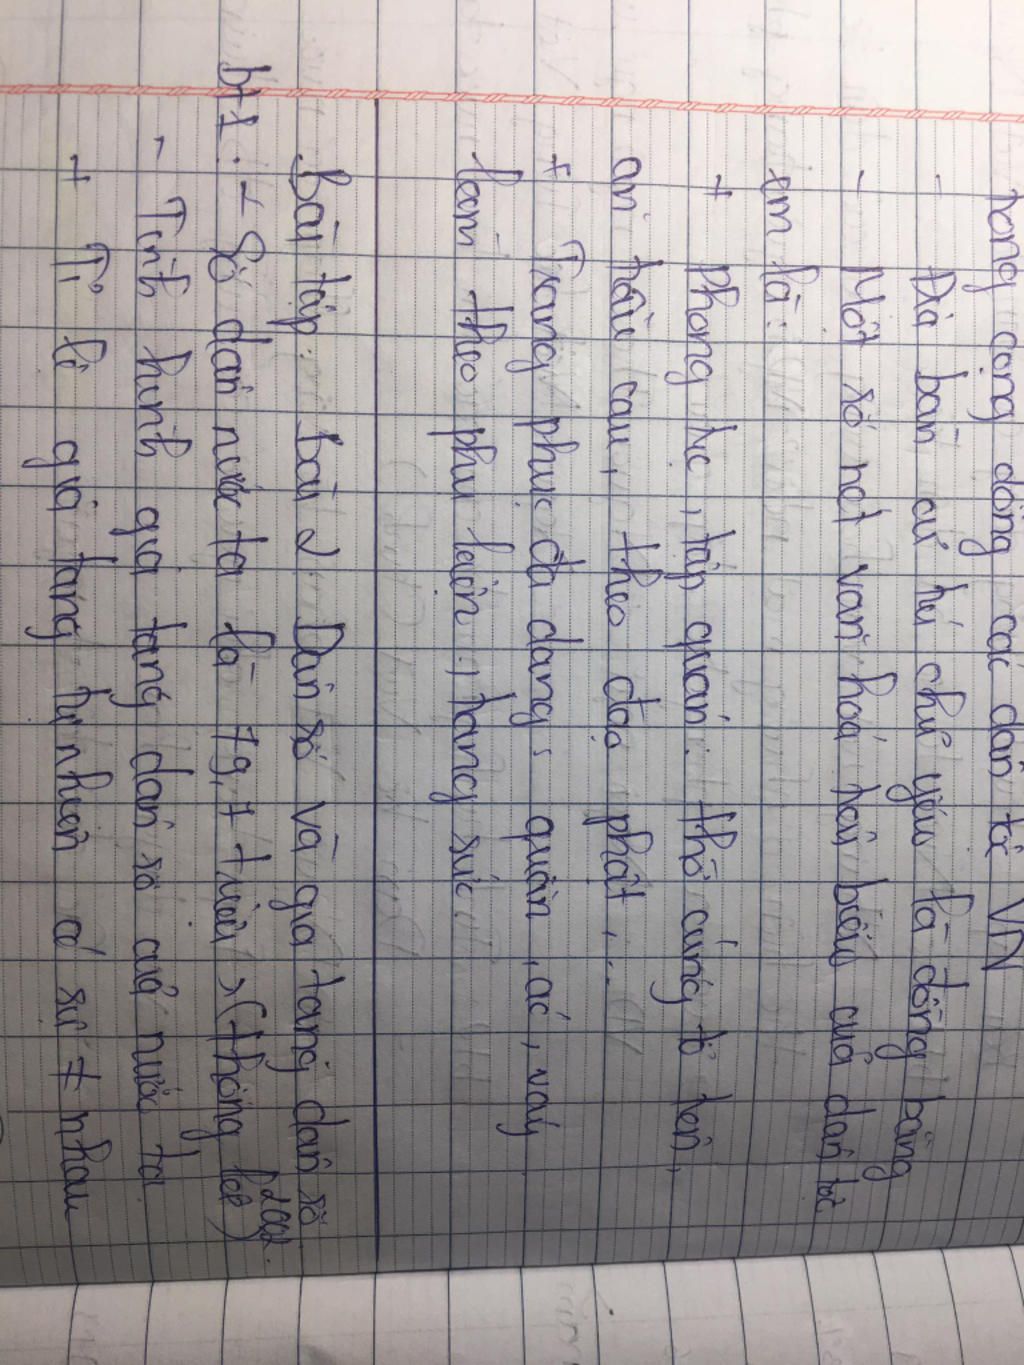 trong cộng đồng các dân tộc VN
- Địa bàn cư trú chủ yếu là đồng bằng
- Một số nét văn hoá tiêu biểu của dân tộc
em là:
+ Phong tục, tập quán: thờ cúng tổ tiên,
ăn trầu cau, theo đạo phật,...
+ Trang phục đa dạng: quần, áo, váy
làm theo phụ kiện, trang sức.
Bài tập: Bài 2 Dân số và gia tăng dân số
bt1: - Số dân nước ta là 79,7 triệu (thống kê) 2002
- Tình hình gia tăng dân số của nước ta
+ Tỉ lệ gia tăng tự nhiên có sự ≠ nhau